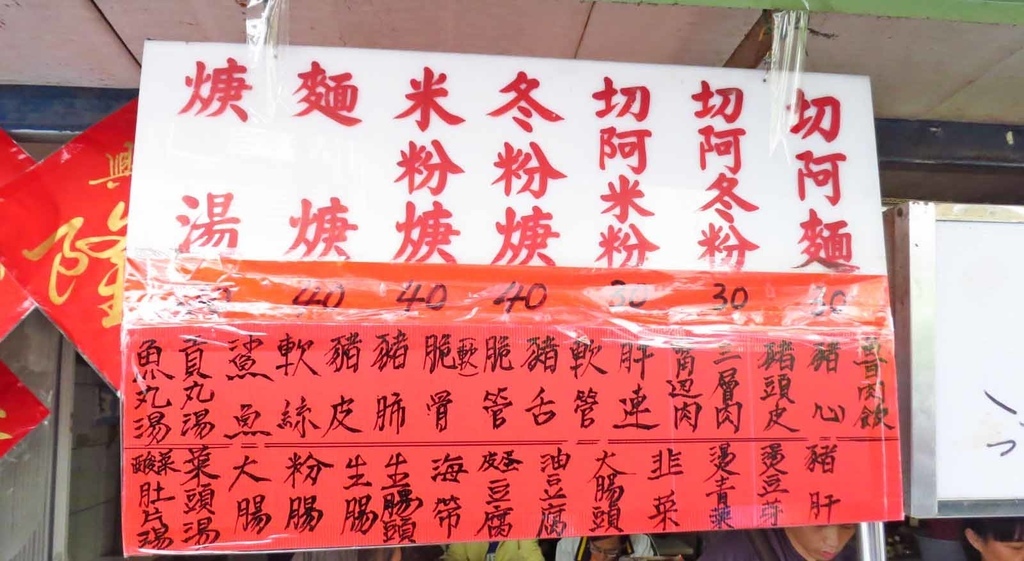 切阿麵
30
切阿冬粉
30
切阿米粉
30
冬粉焿
40
米粉焿
40
麵焿
40
焿湯
肉飯
豬心
豬頭皮
三層肉
嘴边肉
肝連
軟管
豬舌
脆管
脆(軟)骨
豬肺
豬皮
軟絲
鯊魚
貢丸湯
魚丸湯
豬肝
燙豆芽
燙青菜
韭菜
大腸頭
油豆腐
皮蛋豆腐
海帶
生腸頭
生腸
粉腸
大腸
菜頭湯
酸菜肚片湯
興隆